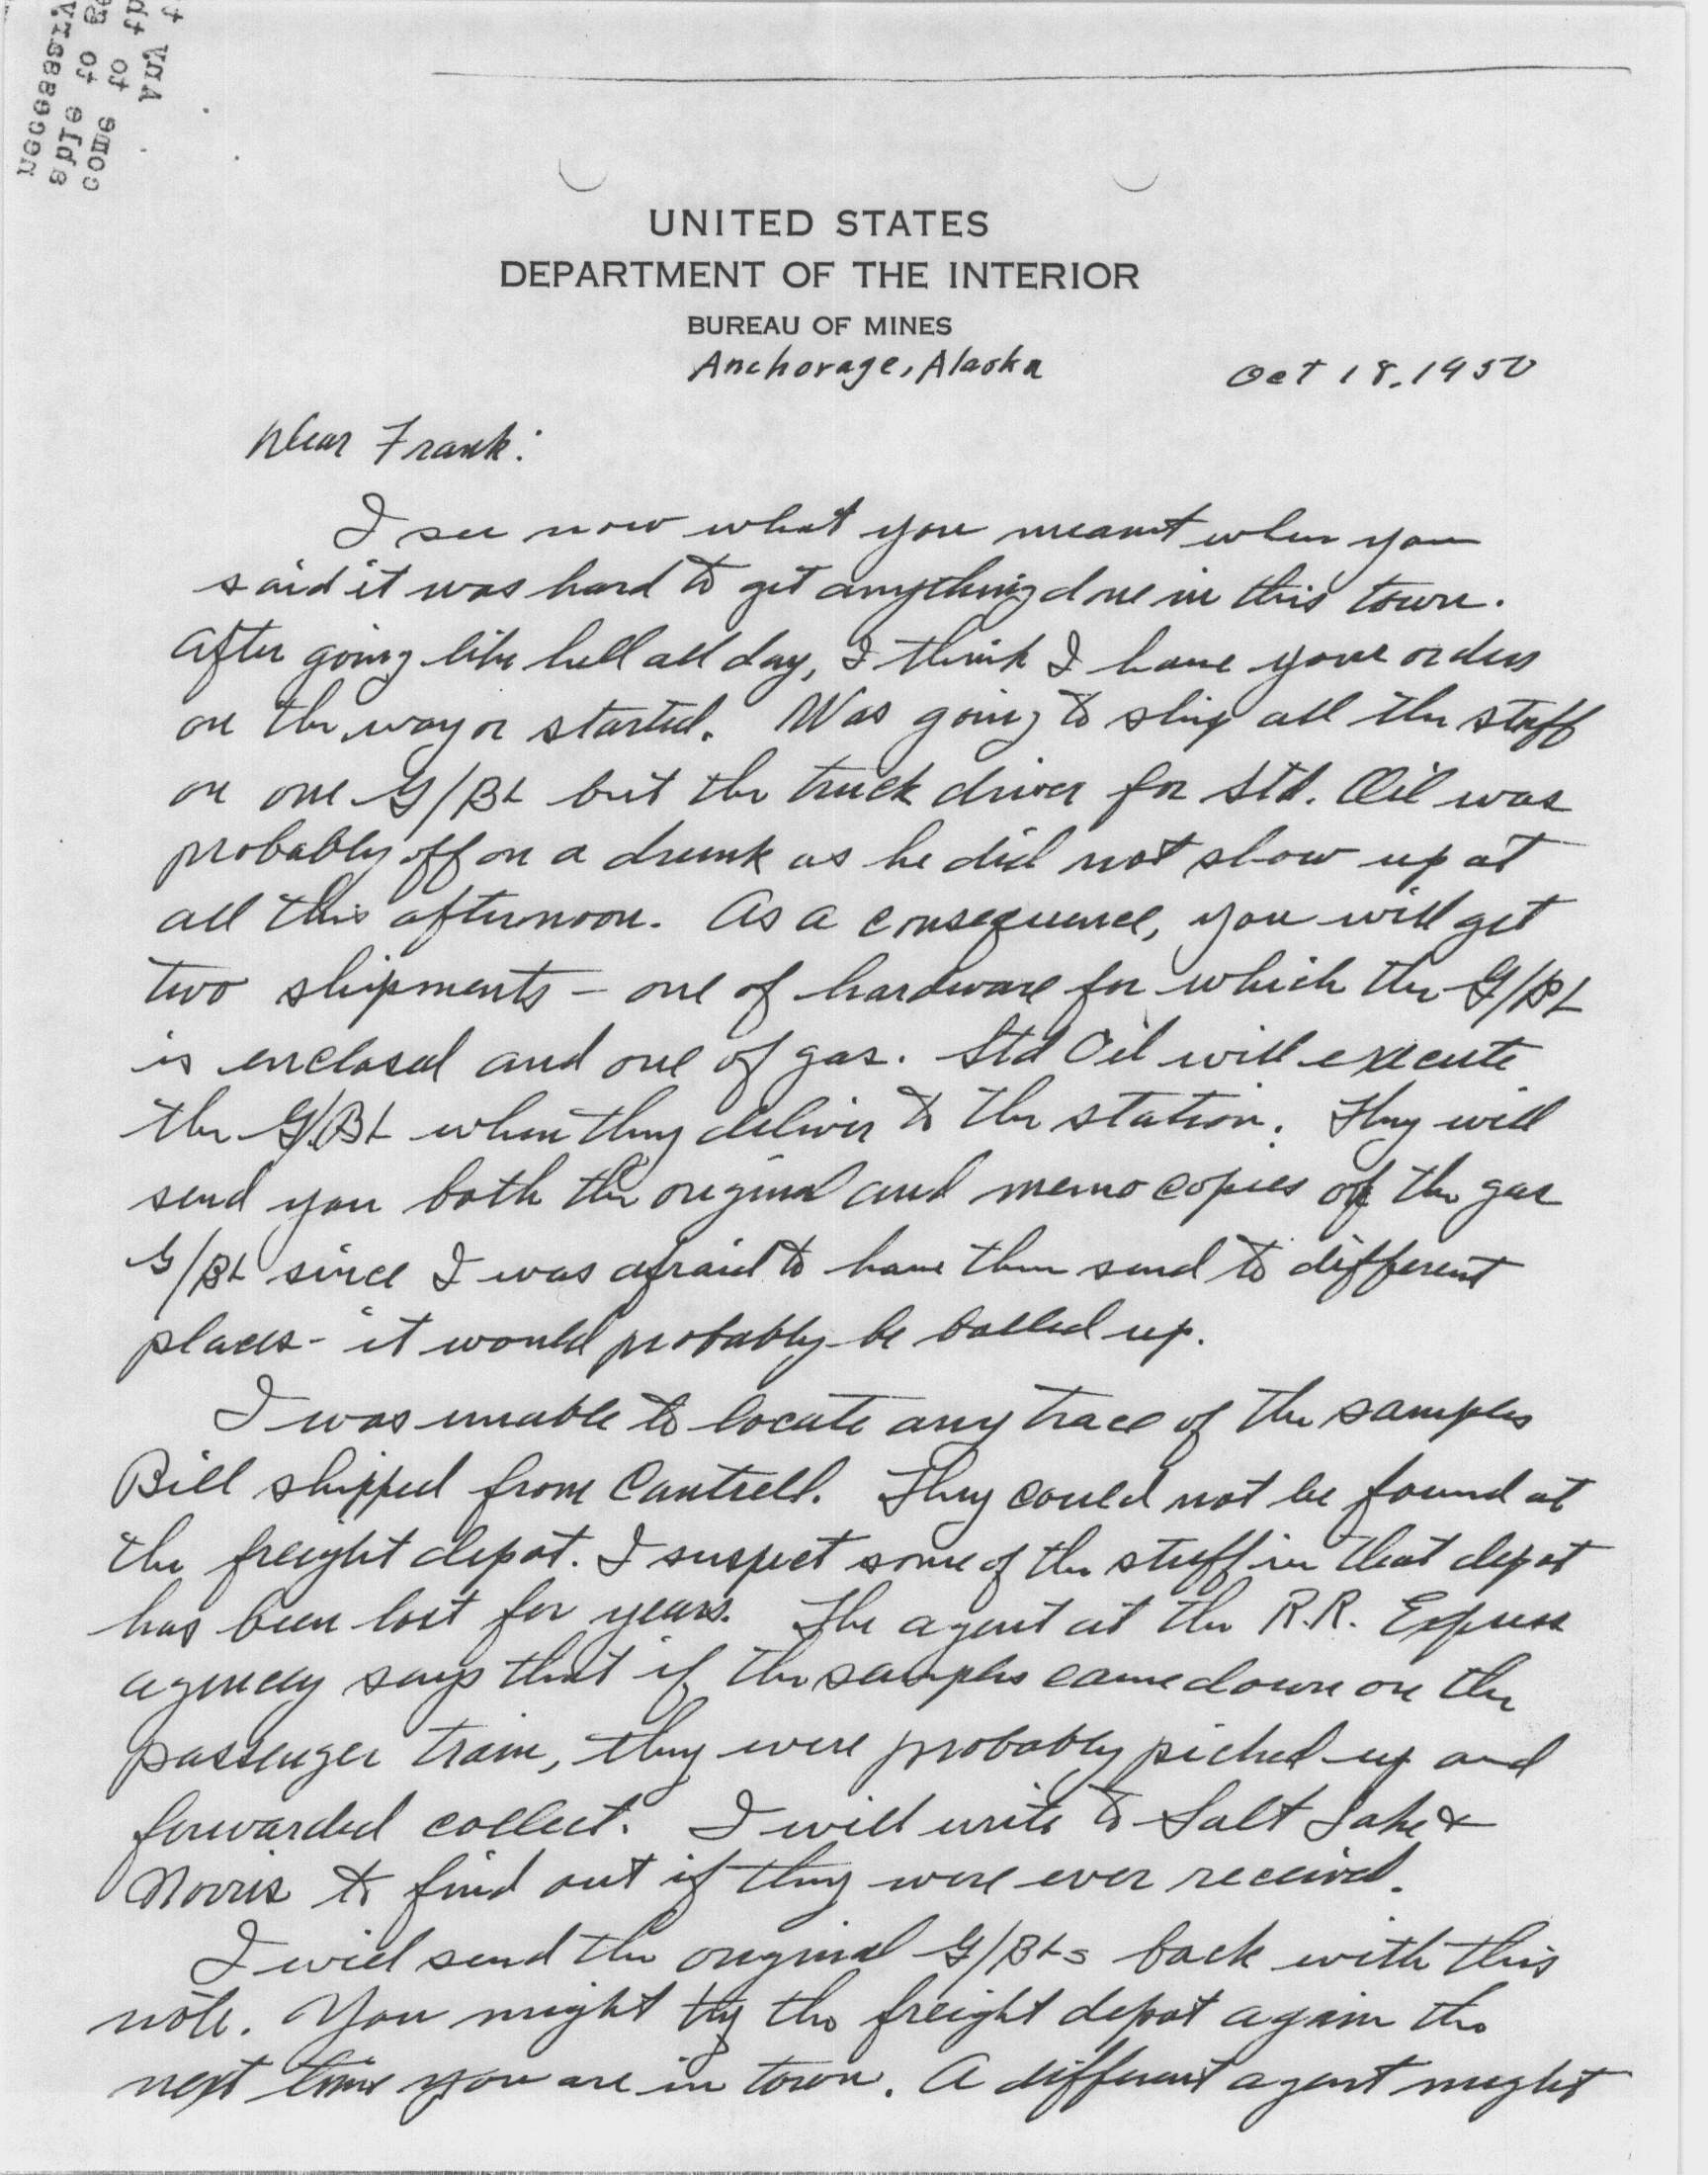 UNITED STATES
DEPARTMENT OF THE INTERIOR
BUREAU OF MINES
Anchorage, Alaska
Oct 18, 1950
Dear Frank:
I see now what you meant when you
said it was hard to get anything done in this town.
After going like hell all day, I think I have your orders
on the way or started. Was going to ship all the stuff
on one G/BL but the truck driver for Std. Oil was
probably off on a drunk as he did not show up at
all this afternoon. As a consequence, you will get
two shipments - one of hardware for which the G/BL
is enclosed and one of gas. Std Oil will execute
the G/BL when they deliver to the station. They will
send you both the original and memo copies of the gas
G/BL since I was afraid to have them send to different
places - it would probably be balled up.
I was unable to locate any trace of the samples
Bill shipped from Cantrell. They could not be found at
the freight depot. I suspect some of the stuff in that depot
has been lost for years. The agent at the R.R. Express
agency says that if the samples came down on the
passenger train, they were probably picked up and
forwarded collect. I will write to Salt Lake &
Norris to find out if they were ever received.
I will send the original G/BLs back with this
note. You might try the freight depot again the
next time you are in town. A different agent might
necessary
some of